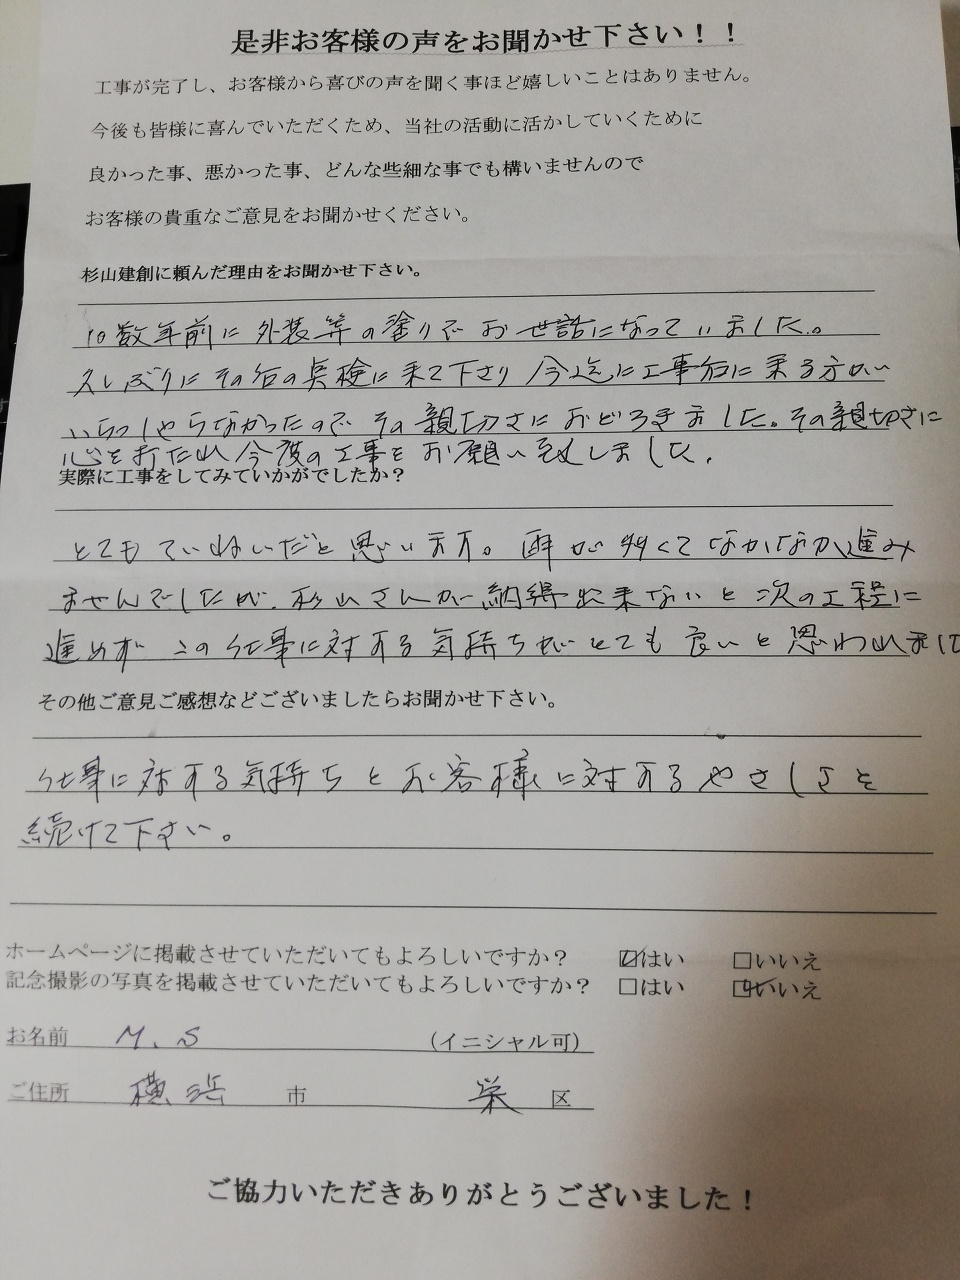 是非お客様の声をお聞かせ下さい！！
工事が完了し、お客様から喜びの声を聞く事ほど嬉しいことはありません。
今後も皆様に喜んでいただくため、当社の活動に活かしていくために
良かった事、悪かった事、どんな些細な事でも構いませんので
お客様の貴重なご意見をお聞かせください。
杉山建創に頼んだ理由をお聞かせ下さい。
10数年前に外装等の塗りでお世話になっていました。
久しぶりにその後の点検に来て下さり今迄に工事后に来る方が
いらっしゃらなかったのでその親切さにおどろきました。その親切さに
心を打たれ今度の工事をお願い致しました.
実際に工事をしてみていかがでしたか？
とてもていねいだと思います。雨が多くてなかなか進み
ませんでしたが、杉山さんが納得出来ないと次の工程に
進めず この仕事に対する気持ちがとても良いと思われまし
その他ご意見ご感想などございましたらお聞かせ下さい。
仕事に対する気持ちとお客様に対するやさしさを
続けて下さい。
ホームページに掲載させていただいてもよろしいですか？ ☑はい □いいえ
記念撮影の写真を掲載させていただいてもよろしいですか？ □はい ☑いいえ
お名前 M.S (イニシャル可)
ご住所 横浜 市 栄 区
ご協力いただきありがとうございました！